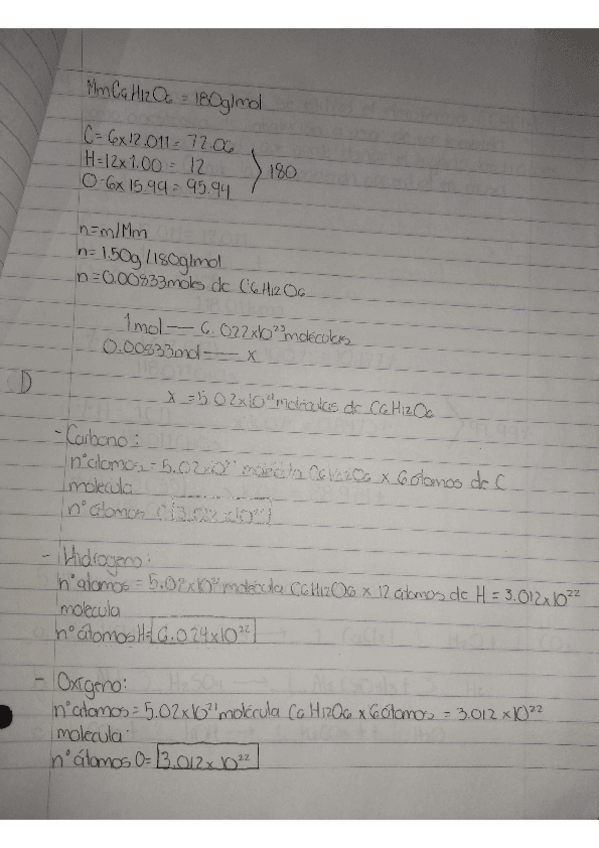 MmC6H12O6 = 180g/mol
C=6x12.011=72.06
H=12x1.00= 12 180
O=6x15.99=95.94
n=m/Mm
n=1.50g/180g/mol
n=0.00833moles de C6H12O6
1mol — 6.022x10²³moléculas
0.00833mol — x
D
x =5.02x10²¹moléculas de C6H12O6
- Carbono:
n°átomos=5.02x10²¹ molécula C6H12O6 x 6 átomos de C
molécula
n° átomos
- Hidrogeno:
n°átomos=5.02x10²¹molécula C6H12O6 x 12 átomos de H = 3.012x10²²
molécula
n°átomosH=6.024x10²²
- Oxígeno:
n°átomos=5.02x10²¹molécula C6H12O6 x 6átomos = 3.012x10²²
molécula
n°átomos O= 3.012x10²²